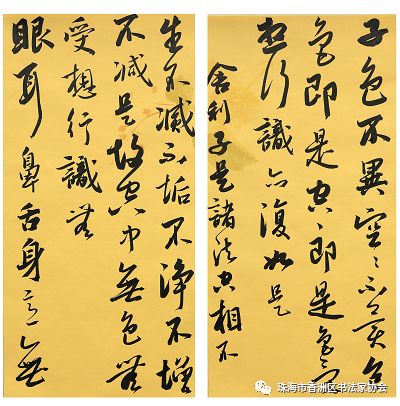 子色不異空〻不異色
色即是空〻即是色受
想行識亦復如是
舍利子是諸法空相不
生不滅不垢不淨不增
不減是故空中無色無
受想行識無
眼耳鼻舌身意無
珠海市香洲区书法家协会